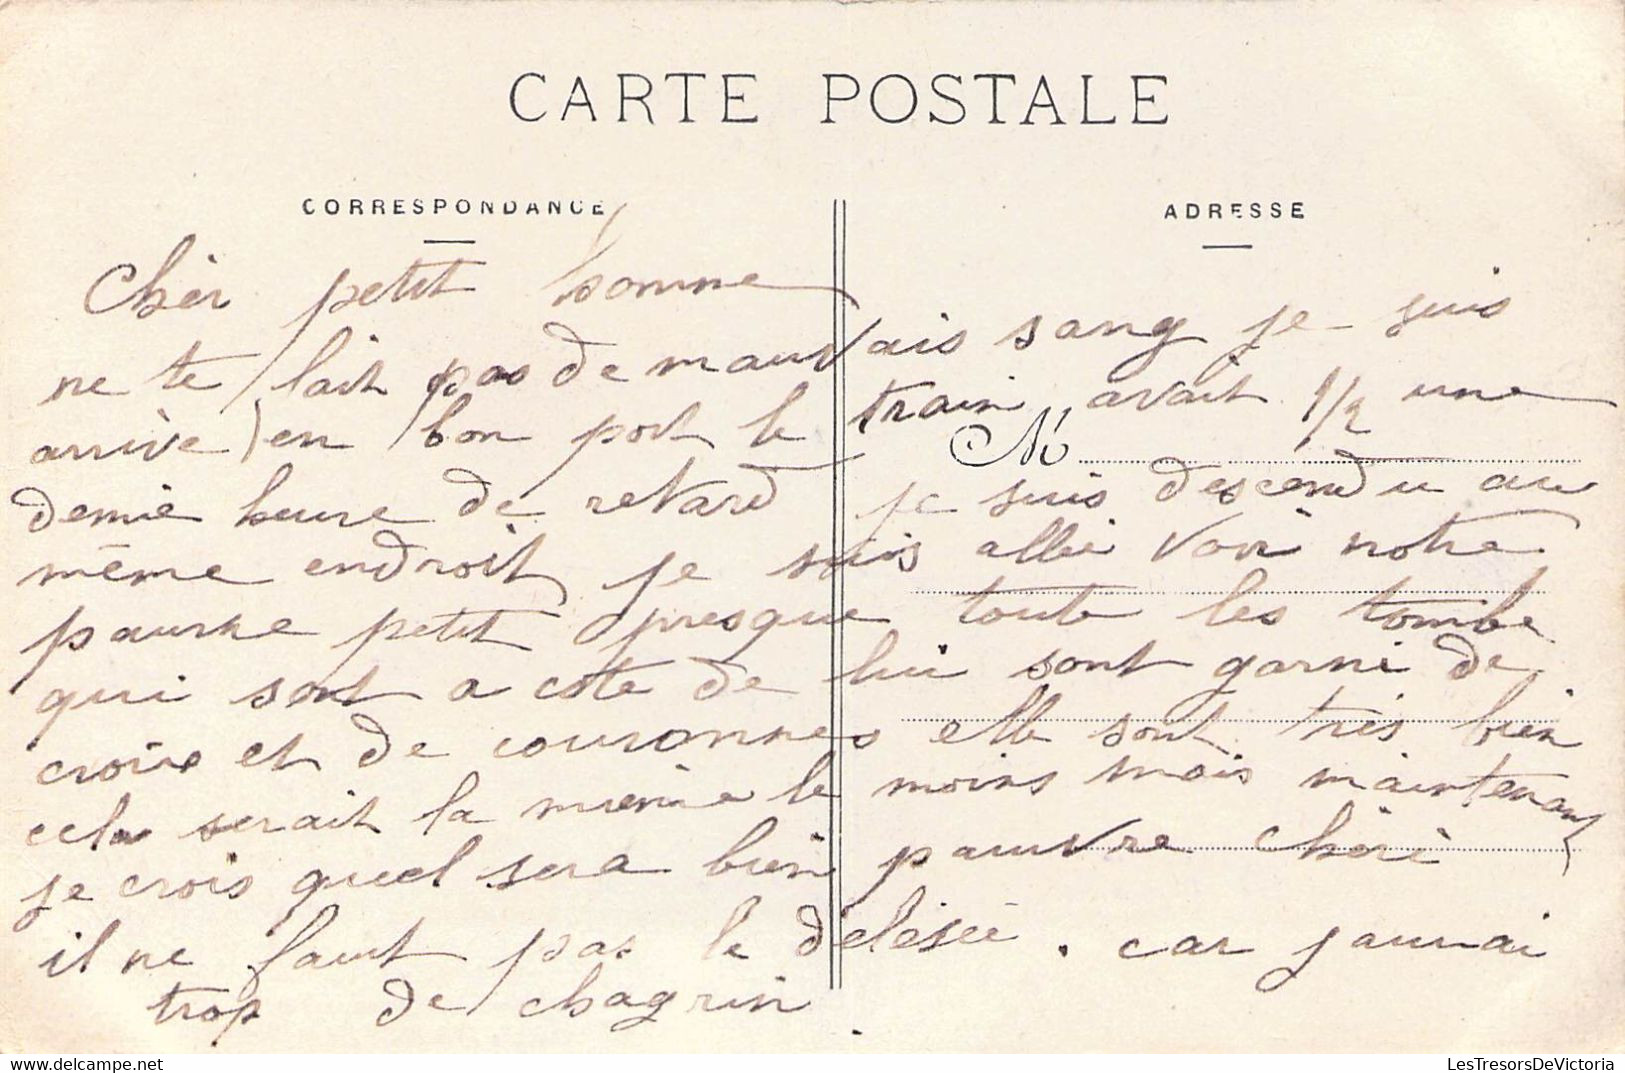 CARTE POSTALE
CORRESPONDANCE
ADRESSE
Chèr petit homme
ne te fait pas de mauvais sang je suis
arrive en bon port le train avait 1/2 une
M
demie heure de retard je suis descendu au
même endroit je suis allée voir notre
pauvre petit presque toute les tombe
qui sont a cote de lui sont garni de
croix et de couronnes elle sont très bien
cela serait la même le moins mois maintenant
je crois quel sera bien pauvre chéri
il ne faut pas le délésée . car jaurai
trop de chagrin .
LesTresorsDeVictoria